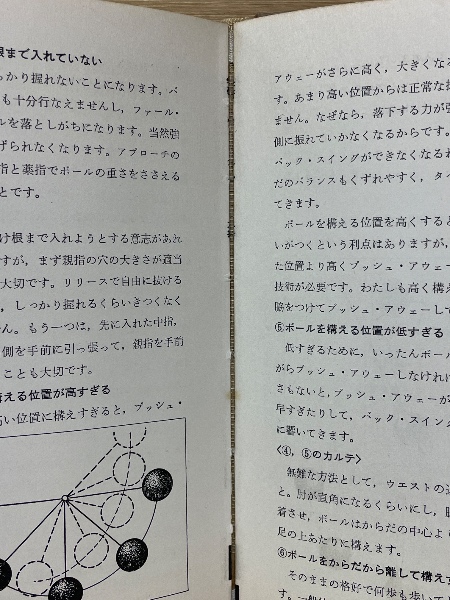 根まで入れていない
っかり握れないことになります。バ
も十分行なえませんし，ファール・
ルを落としがちになります。当然強
げられなくなります。アプローチの
指と薬指でボールの重さをささえる
とです。
け根まで入れようとする意志があれ
すが，まず親指の穴の大きさが適当
大切です。リリースで自由に抜ける
，しっかり握れるくらいきつくなく
ん。もう一つは，先に入れた中指，
側を手前に引っ張って，親指を手前
ことも大切です。
える位置が高すぎる
高い位置に構えすぎると，プッシュ・
アウェーがさらに高く，大きくなる
す。あまり高い位置からは正常な
ません。なぜなら，落下する力が
側に振れていかなくなるからです。
バック・スイングができなくなる
だのバランスもくずれやすく，タイ
てきます。
ボールを構える位置を高くすると
いがつくという利点はありますが，
た位置より高くプッシュ・アウェー
技術が必要です。わたしも高く構え
脇をつけてプッシュ・アウェーして
⑤ボールを構える位置が低すぎる
低すぎるために，いったんボール
がらプッシュ・アウェーしなければ
さもないと，プッシュ・アウェーが
早すぎたりして，バック・スイング
に響いてきます。
〈④，⑤のカルテ〉
無難な方法として，ウエストの
と。肘が直角になるくらいにし，
着させ，ボールはからだの中心よ
足の上あたりに構えます。
⑥ボールをからだから離して構えす
そのままの格好で何歩も歩いて